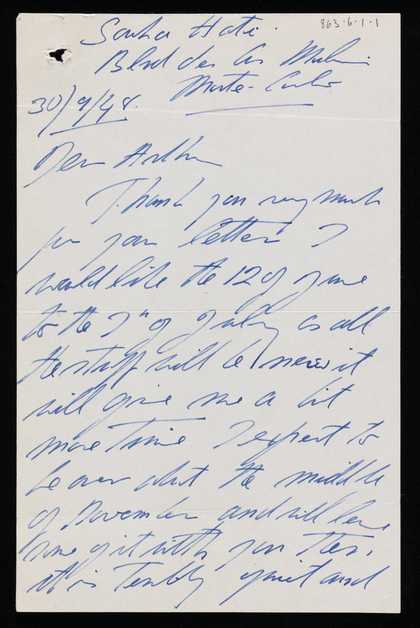 863-6-1-1
Hotel
Blvd des
Monte-Carlo
30/9/48.
Dear Arthur
Thank you very much
for your letter I
would like the 12 of June
to the 7th of July as all
the staff will be new it
will give me a bit
more time I expect to
be over about the middle
of November and will have
some of it with you then.
It is terribly quiet and